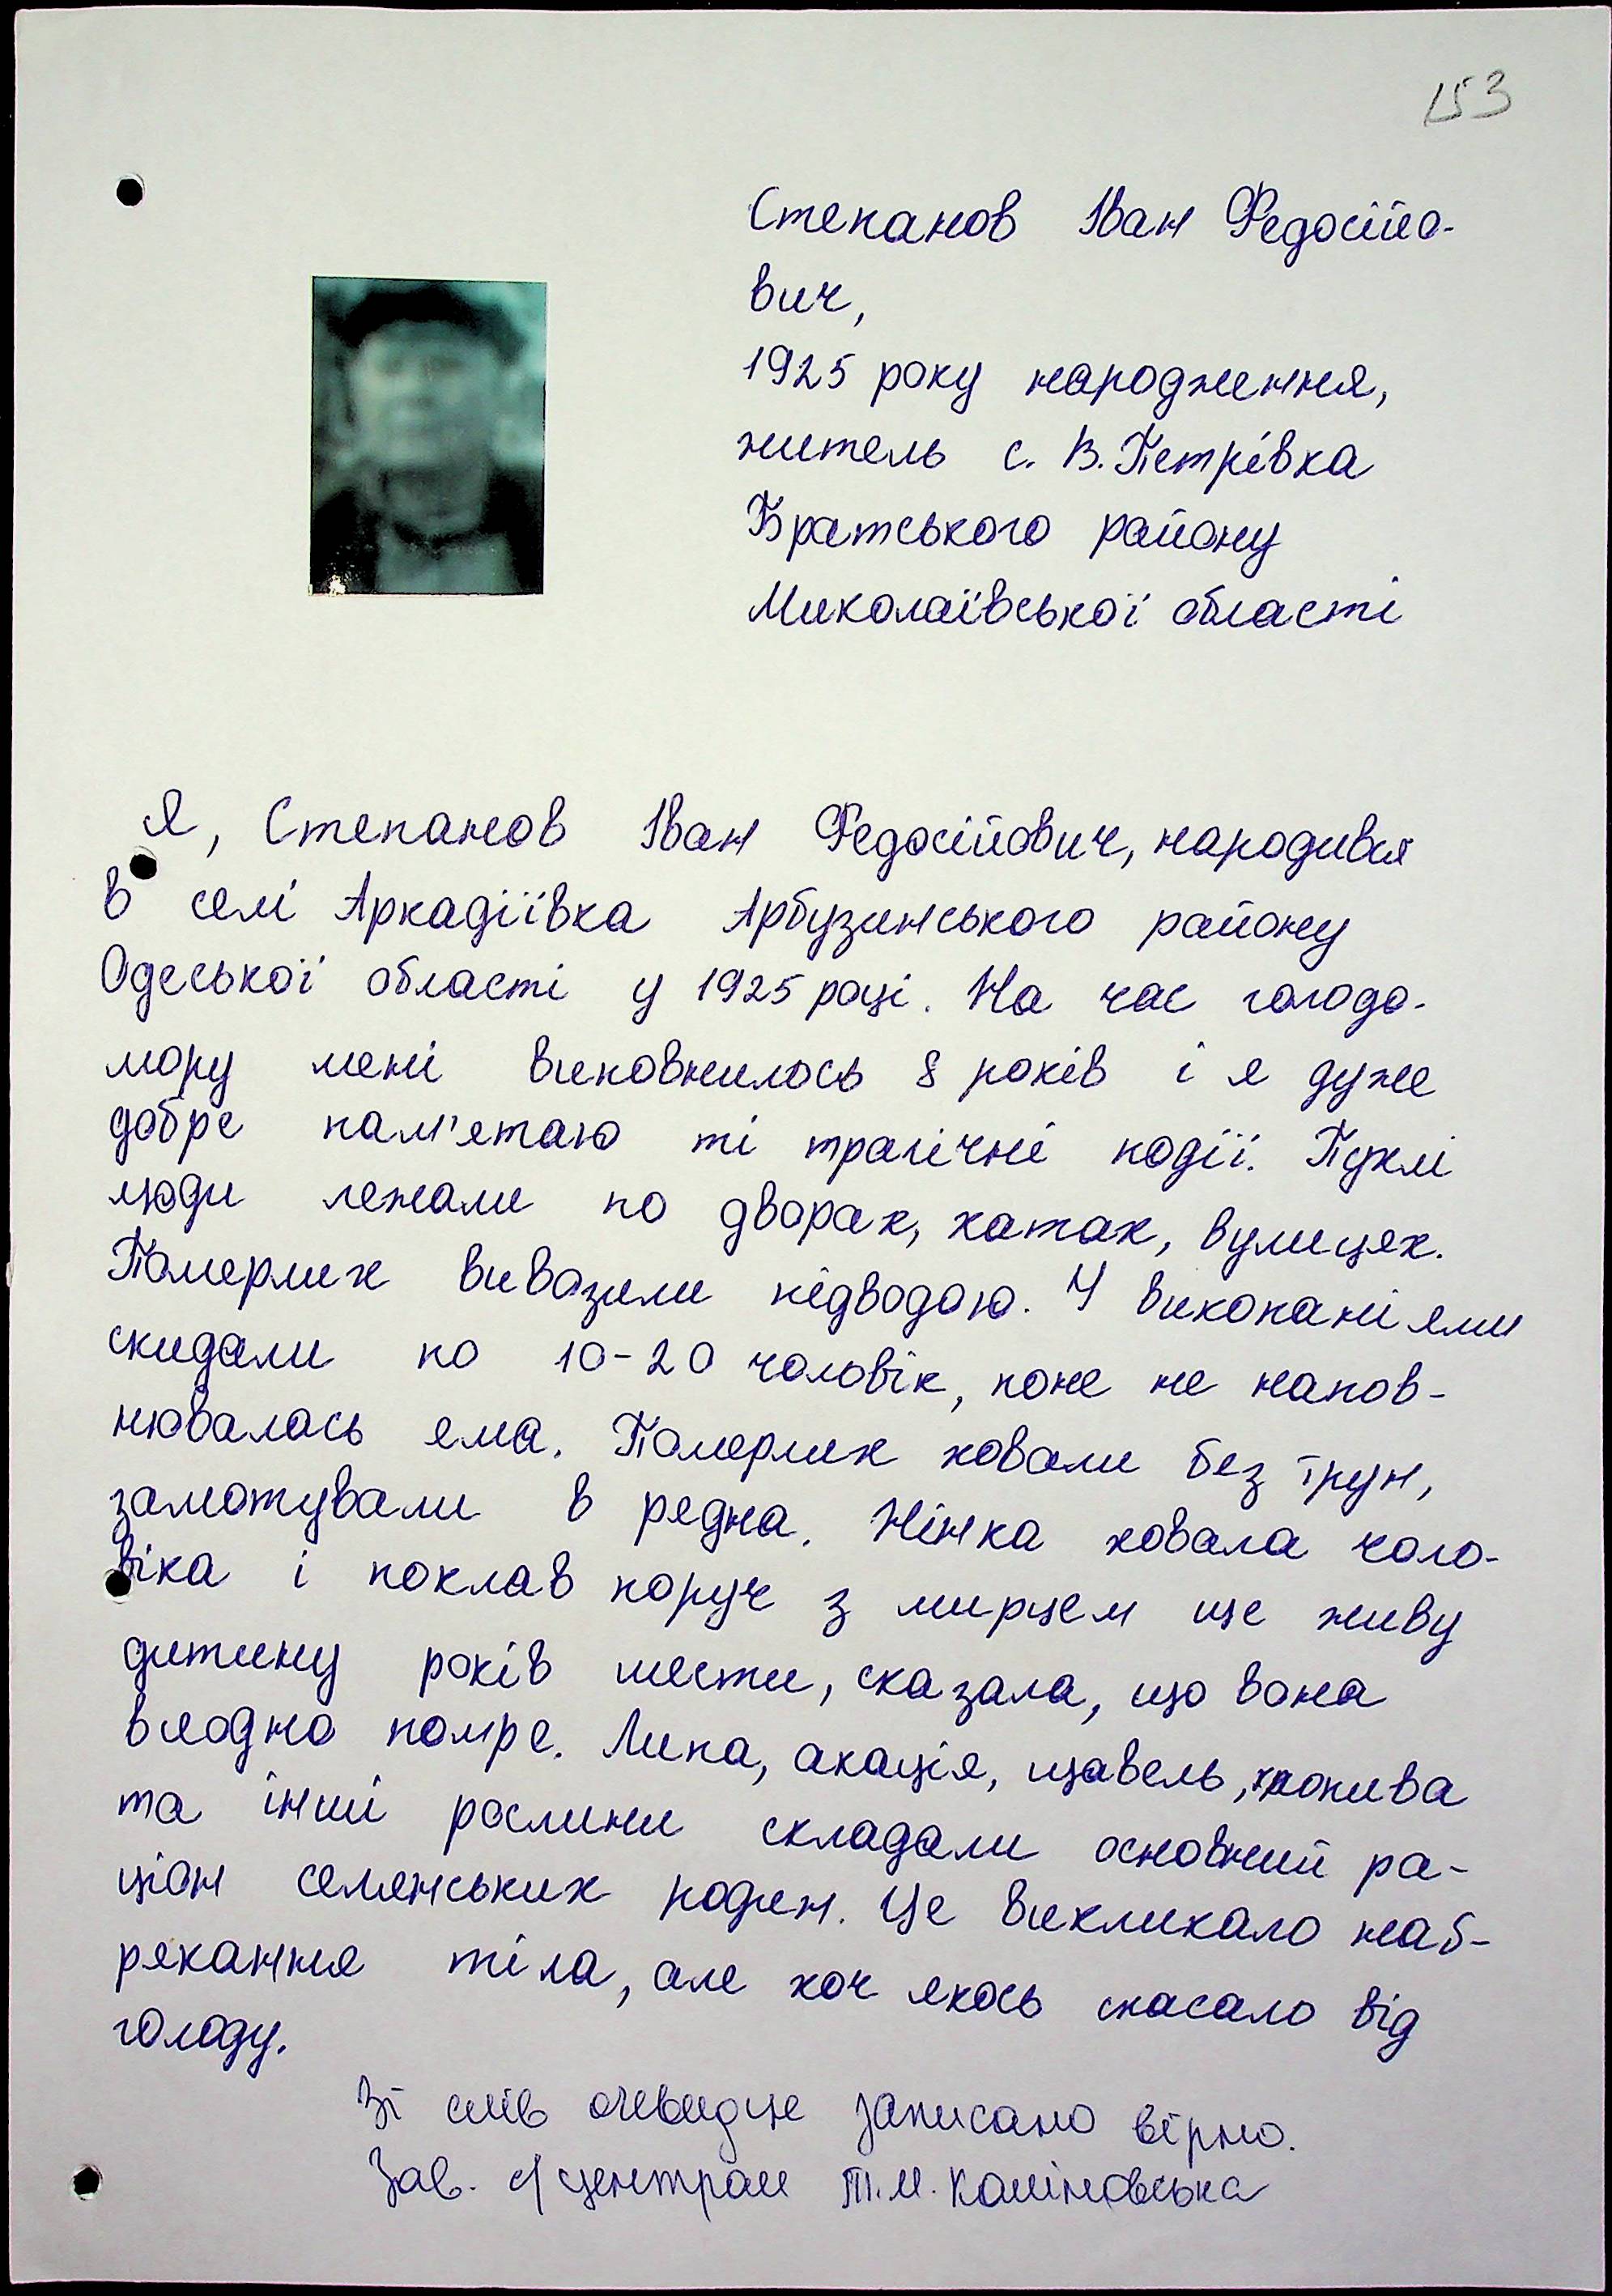 153
Степанов Іван Федосійо-
вич,
1925 року народження,
житель с. В. Петрівка
Братського району
Миколаївської області
Я, Степанов Іван Федосійович, народився
в селі Аркадіївка Арбузинського району
Одеської області у 1925 році. На час голодо-
мору мені виповнилось 8 років і я дуже
добре пам'ятаю ті трагічні події. Пухлі
люди лежали по дворах, хатах, вулицях.
Померлих вивозили підводою. У викопані ями
скидали по 10-20 чоловік, поке не напов-
нювалась яма. Померлих ховали без трун,
замотували в рядна. Жінка ховала чоло-
віка і поклав поруч з мирцем ще живу
дитину років шести, сказала, що вона
всеодно помре. Липа, акація, щавель, кропива
та інші рослини складали основний ра-
ціон селянських родин. Це викликало наб-
рякання тіла, але хоч якось спасало від
голоду.
Зі слів очевидця записано вірно.
Зав. с/центром Т.М. Каліновська